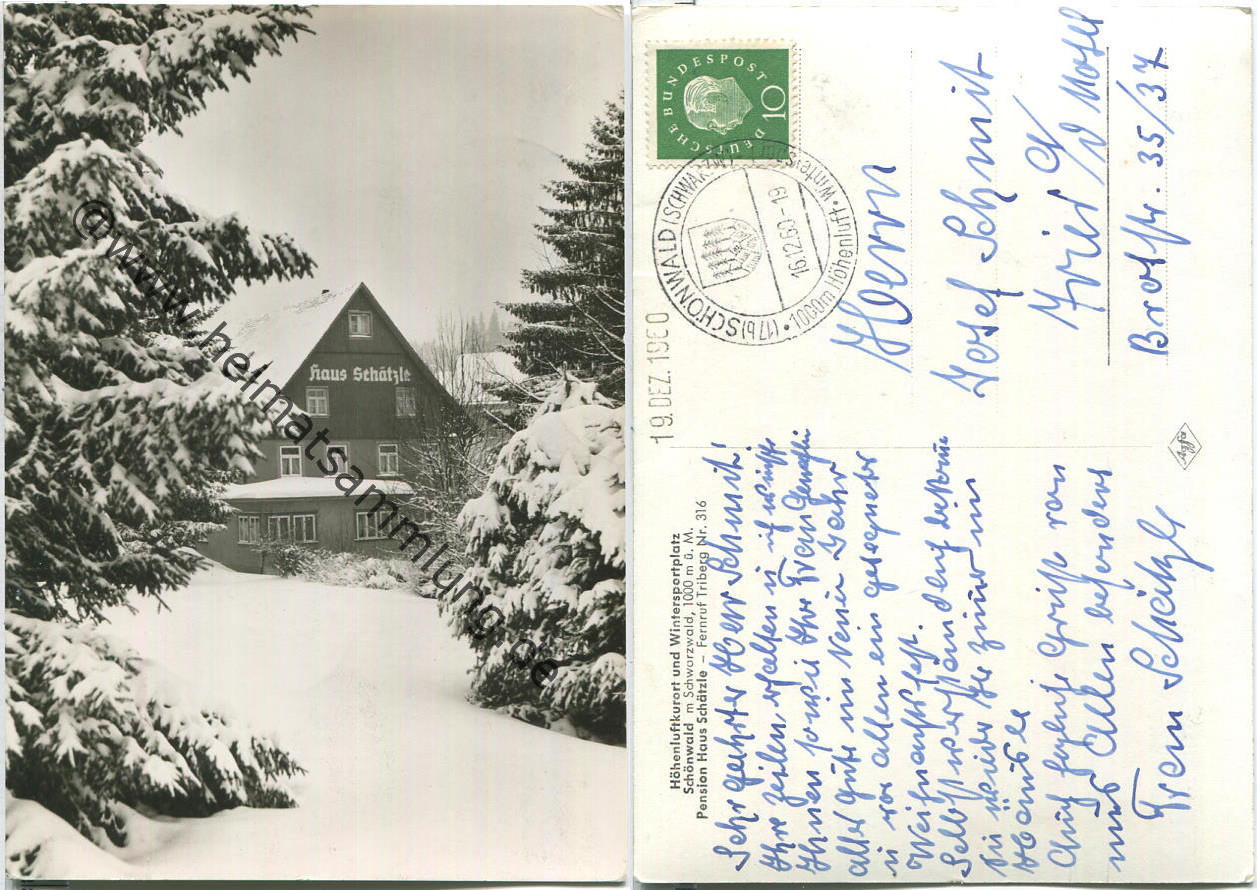 Haus Schätzle
@www.heimatsammlung.de
DEUTSCHE BUNDESPOST
10
(17b) SCHÖNWALD (SCHWARZW)
16.12.60-19
1000m Höhenluft • Winter
19. DEZ. 1960
Herrn
Josef Schmit
Trier a/d Mosel
Brotstr. 35/37
Agfa
Höhenluftkurort und Wintersportplatz
Schönwald im Schwarzwald, 1000 m ü. M.
Pension Haus Schätzle – Fernruf Triberg Nr. 316
Sehr geehrter Herr Schmit!
Ihre Zeilen erhalten u ich wünsche
Ihnen sowie Ihre Frau Gemahlin
alles gute im Neuen Jahr
u vor allem ein gesegnetes
Weihnachtsfest.
Selbstverständlich bekommen
Sie wieder Ihr Zimmer im
Hause
Auf herzliche Grüße von
uns Allen besonders
Frau Schätzle